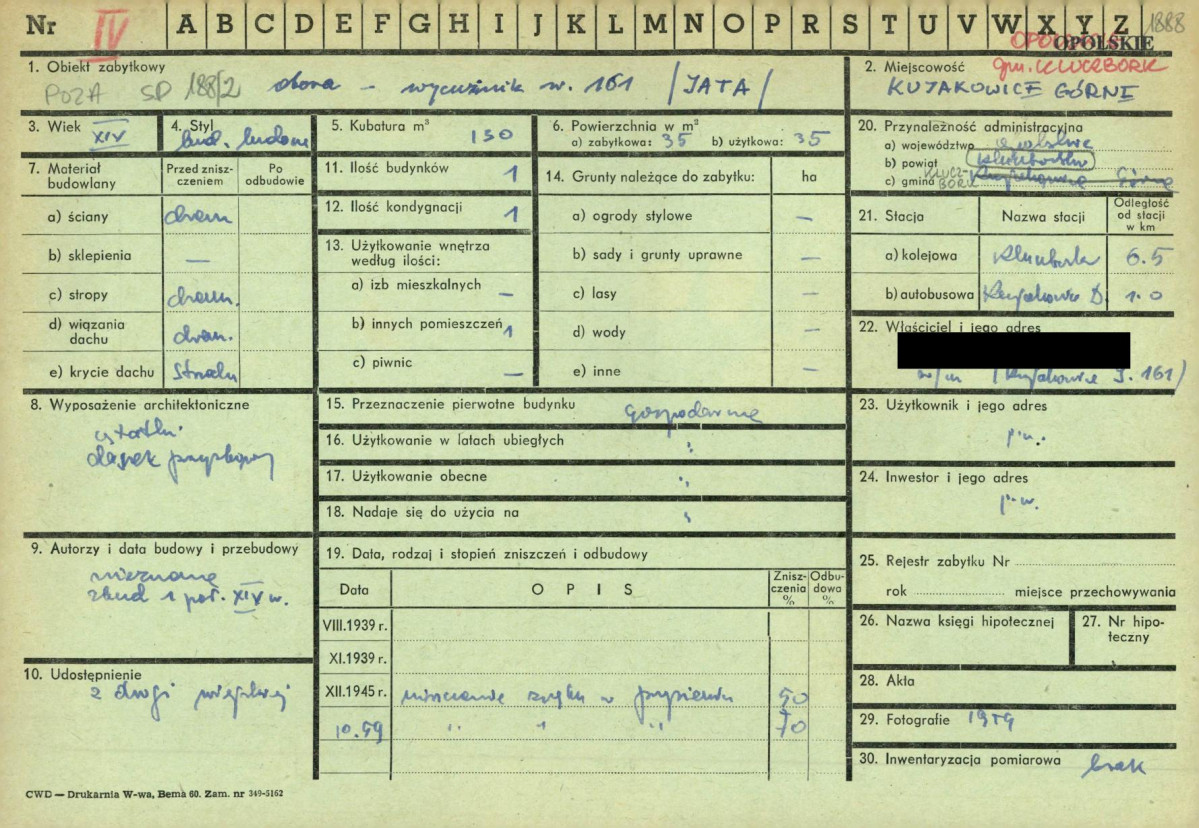 Nr IV A B C D E F G H I J K L M N O P R S T U V W X Y Z 1888
OPOLSKIE
1. Obiekt zabytkowy
POZA SP 188/2 obora – wycużnik nr. 161 /JATA/
2. Miejscowość gm. KLUCZBORK
KUJAKOWICE GÓRNE
3. Wiek
XIV
4. Styl
bud. ludowe
5. Kubatura m³ 150
6. Powierzchnia w m²
a) zabytkowa: 35 b) użytkowa: 35
7. Materiał budowlany
Przed zniszczeniem
Po odbudowie
a) ściany drewn
b) sklepienia —
c) stropy drewn.
d) wiązania dachu drewn.
e) krycie dachu
8. Wyposażenie architektoniczne
daszek przyzbowy
9. Autorzy i data budowy i przebudowy
nieznane
zbud 1 poł. XIX w.
10. Udostępnienie
z drogi wiejskiej
11. Ilość budynków 1
12. Ilość kondygnacji 1
13. Użytkowanie wnętrza według ilości:
a) izb mieszkalnych —
b) innych pomieszczeń 1
c) piwnic —
14. Grunty należące do zabytku: ha
a) ogrody stylowe —
b) sady i grunty uprawne —
c) lasy —
d) wody —
e) inne —
15. Przeznaczenie pierwotne budynku gospodarcze
16. Użytkowanie w latach ubiegłych "
17. Użytkowanie obecne "
18. Nadaje się do użycia na "
19. Data, rodzaj i stopień zniszczeń i odbudowy
Data
OPIS
Zniszczenia %
Odbudowa %
VIII.1939 r.
XI.1939 r.
XII.1945 r. niszczenie w przyziemiu 50
10.59 " " " 70
20. Przynależność administracyjna
a) województwo opolskie
b) powiat Kluczbork
c) gmina KLUCZBORK Kujakowice Górne
21. Stacja
Nazwa stacji
Odległość od stacji w km
a) kolejowa Kluczbork 6.5
b) autobusowa Kujakowice D. 1.0
22. Właściciel i jego adres
w/m Kujakowice G. 161)
23. Użytkownik i jego adres
j.w.
24. Inwestor i jego adres
j.w.
25. Rejestr zabytku Nr
rok miejsce przechowywania
26. Nazwa księgi hipotecznej
27. Nr hipoteczny
28. Akta
29. Fotografie 1959
30. Inwentaryzacja pomiarowa brak
CWD — Drukarnia W-wa, Bema 60. Zam. nr 349-5162